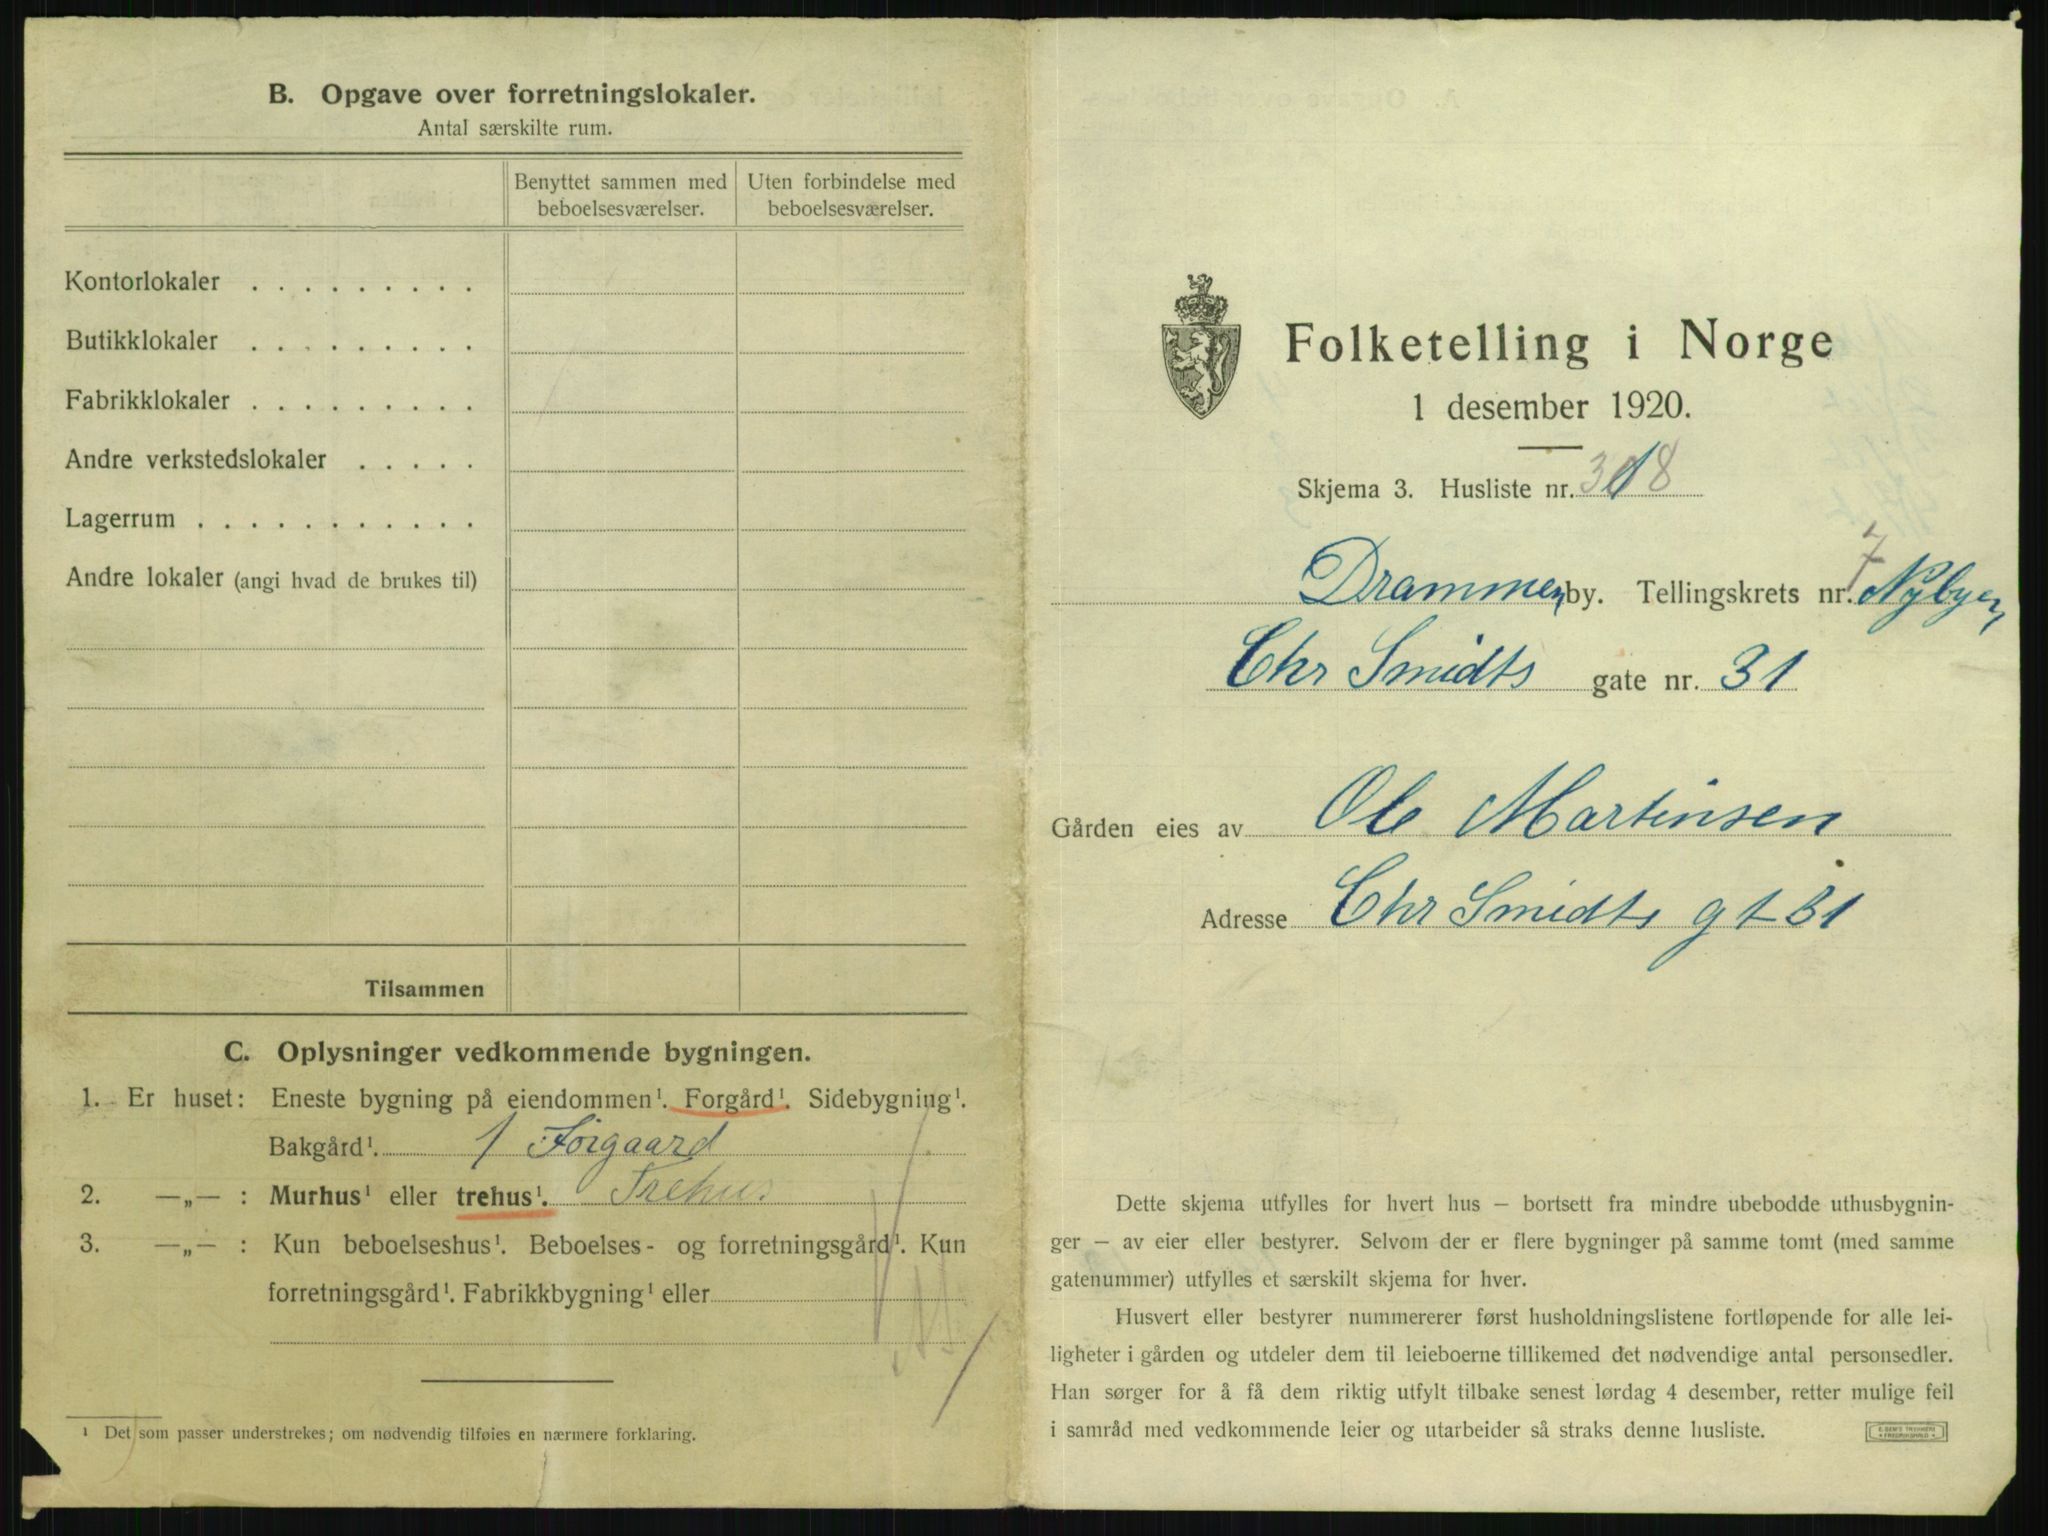 B. Opgave over forretningslokaler.
Antal særskilte rum.
Benyttet sammen med beboelsesværelser.
Uten forbindelse med beboelsesværelser.
Kontorlokaler . . . . . . . . .
Butikklokaler . . . . . . . . .
Fabrikklokaler . . . . . . . . .
Andre verkstedslokaler . . . . .
Lagerrum . . . . . . . . . . .
Andre lokaler (angi hvad de brukes til)
Tilsammen
C. Oplysninger vedkommende bygningen.
1. Er huset: Eneste bygning på eiendommen¹. Forgård¹. Sidebygning¹.
Bakgård¹. 1 Forgaard
2. —„— : Murhus¹ eller trehus¹. Trehus
3. —„— : Kun beboelseshus¹. Beboelses- og forretningsgård¹. Kun
forretningsgård¹. Fabrikkbygning¹ eller
¹ Det som passer understrekes; om nødvendig tilføies en nærmere forklaring.
Folketelling i Norge
1 desember 1920.
Skjema 3. Husliste nr.
7
Drammen by. Tellingskrets nr. Nybyen
Chr Smidts gate nr. 31
Gården eies av Ole Martinsen
Adresse Chr Smidts gt 31
Dette skjema utfylles for hvert hus – bortsett fra mindre ubebodde uthusbygnin-
ger – av eier eller bestyrer. Selvom der er flere bygninger på samme tomt (med samme
gatenummer) utfylles et særskilt skjema for hver.
Husvert eller bestyrer nummererer først husholdningslistene fortløpende for alle lei-
ligheter i gården og utdeler dem til leieboerne tillikemed det nødvendige antal personsedler.
Han sørger for å få dem riktig utfylt tilbake senest lørdag 4 desember, retter mulige feil
i samråd med vedkommende leier og utarbeider så straks denne husliste.